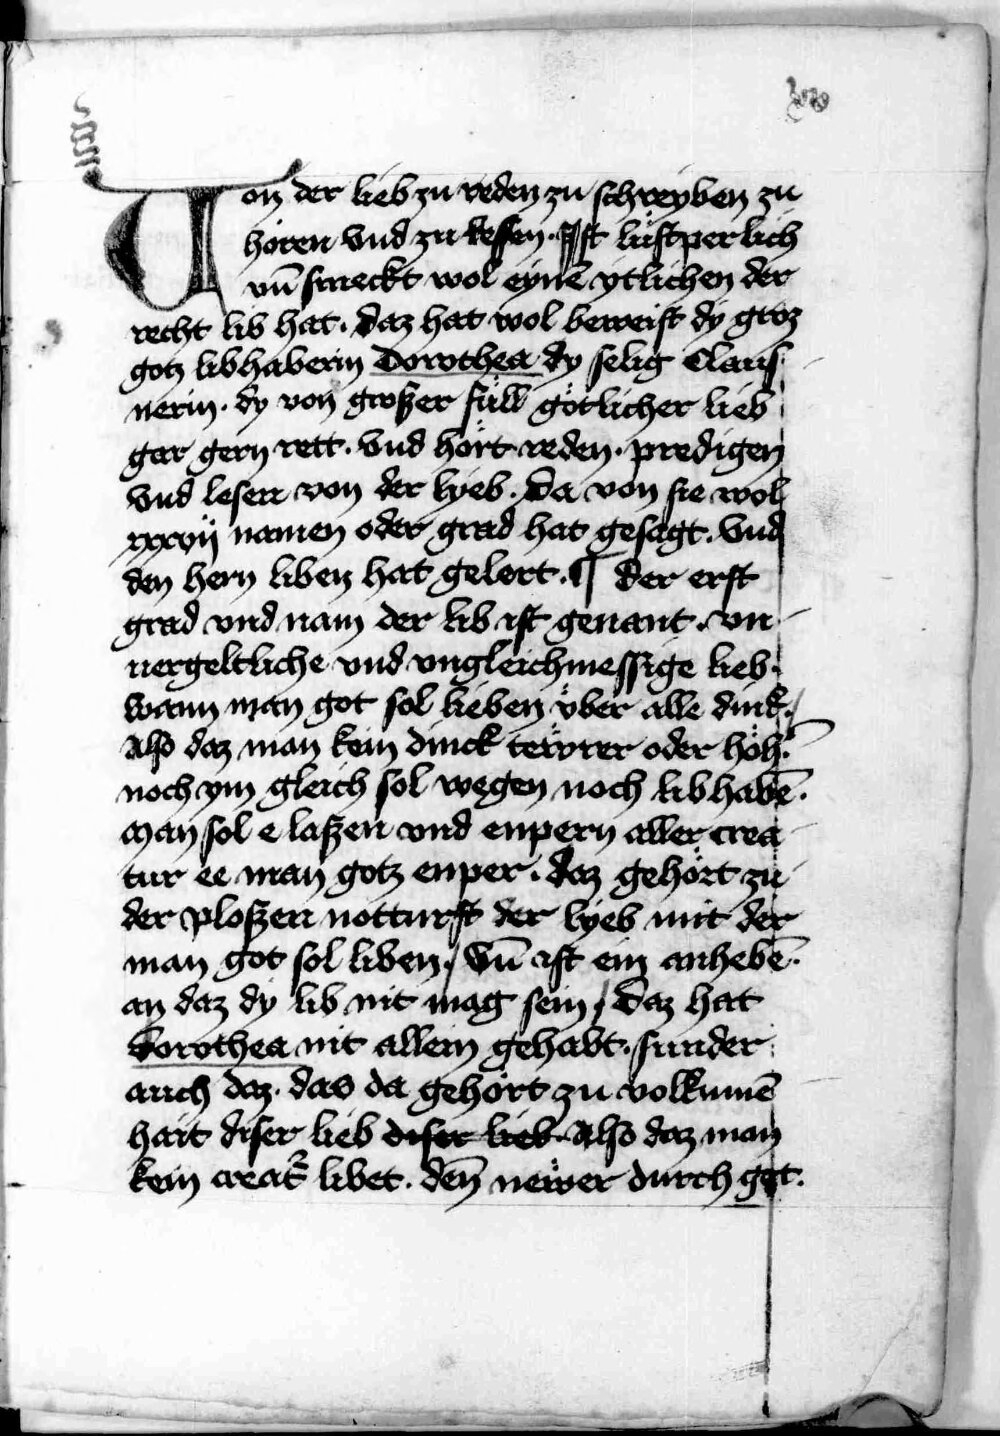 Von der lieb zu reden zu schreyben zu
hören vnd zu lessen. Ist lüstperlich
vn̄ smeckt wol eynē ytlichen der
recht lib hat. Daz hat wol beweist dy groz
gotz libhaberin Dorothea dy selig Claus
nerin. dy von großer füll götlicher lieb
gar gern rett. vnd hört reden. predigen
vnd lesen von der lyeb. Da von sie wol
xxxvij namen oder grad hat gesagt. vnd
den hern liben hat gelert. ¶ Der erst
grad vnd nam der lib ist genant. vn
uergeltliche vnd vngleichmessige lieb.
wann man got sol lieben vber alle dinck.
Also daz man kein dinck tewrer oder höh̄.
noch ym gleich sol wegen noch libhabē.
Man sol e laßen vnd enpern aller crea
tur ee man gotz enper. daz gehört zu
der ploßen notturft der lyeb mit der
man got sol liben. Vn̄ ist ein anhebē.
an daz dy lib nit mag sein. Daz hat
dorothea nit allein gehabt. sunder
auch daz. das da gehört zu volkumē
hait diser lieb diser lieb. Also daz man
kein creat̄ libet. den̄ newer durch got.